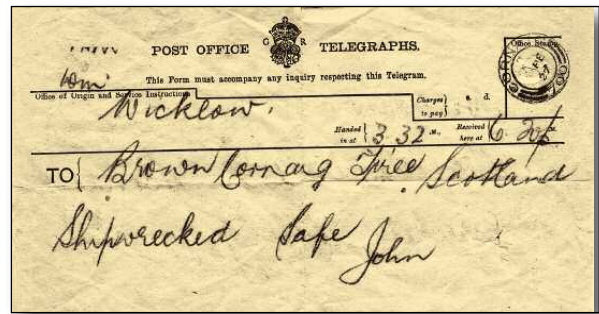 POST OFFICE G R TELEGRAPHS.
Office Stamp
This Form must accompany any inquiry respecting this Telegram.
Office of Origin and Service Instructions
Wicklow.
Charges to pay } s. d.
Handed in at } 3.32 M., Received here at } 6.20
TO { Brown Cornaig Tiree. Scotland
Shipwrecked Safe
John